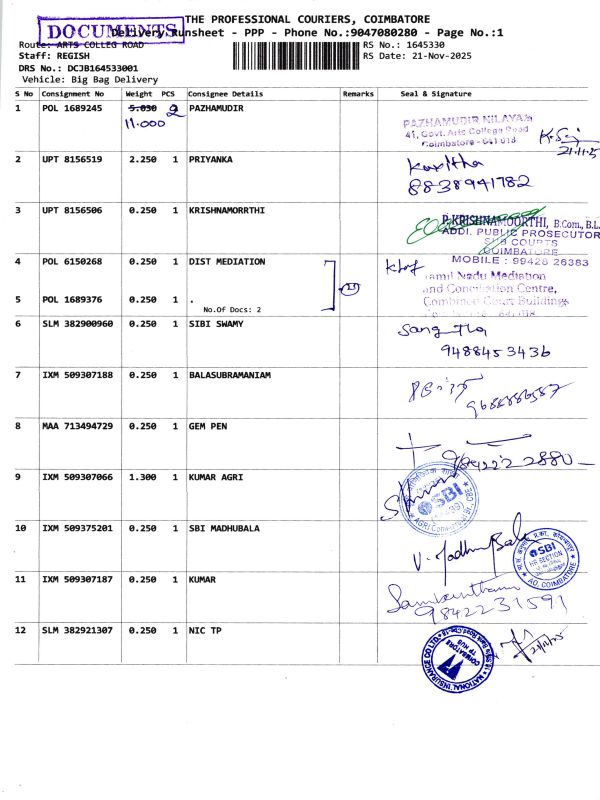 THE PROFESSIONAL COURIERS, COIMBATORE
DOCUMENTS
Delivery Runsheet - PPP - Phone No.:9047080280 - Page No.:1
Route: ARTS COLLEG ROAD
RS No.: 1645330
Staff: REGISH
RS Date: 21-Nov-2025
DRS No.: DCJB164533001
Vehicle: Big Bag Delivery
S No Consignment No Weight PCS Consignee Details Remarks Seal & Signature
1 POL 1689245 5.030 2 PAZHAMUDIR
11.000
PAZHAMUDIR NILAYAM
41, Govt. Arts College Road
Coimbatore - 641 018
21.11.5
2 UPT 8156519 2.250 1 PRIYANKA
Kavitha
8838941782
3 UPT 8156506 0.250 1 KRISHNAMORRTHI
P.KRISHNAMOORTHI, B.Com., B.L.
ADDL. PUBLIC PROSECUTOR
SUB COURTS
COIMBATORE
MOBILE : 99428 26383
4 POL 6150268 0.250 1 DIST MEDIATION
Tamil Nadu Mediation
and Conciliation Centre,
5 POL 1689376 0.250 1 .
No.Of Docs: 2
Combined Court Buildings
6 SLM 382900960 0.250 1 SIBI SWAMY
Sangitha
9488453436
7 IXM 509307188 0.250 1 BALASUBRAMANIAM
8 MAA 713494729 0.250 1 GEM PEN
9842222880
9 IXM 509307066 1.300 1 KUMAR AGRI
SBI
10 IXM 509375201 0.250 1 SBI MADHUBALA
V. Madhu Bala
SBI
HR SECTION
AO, COIMBATORE
11 IXM 509307187 0.250 1 KUMAR
9842231591
12 SLM 382921307 0.250 1 NIC TP
NATIONAL INSURANCE CO LTD
COIMBATORE
TP HUB